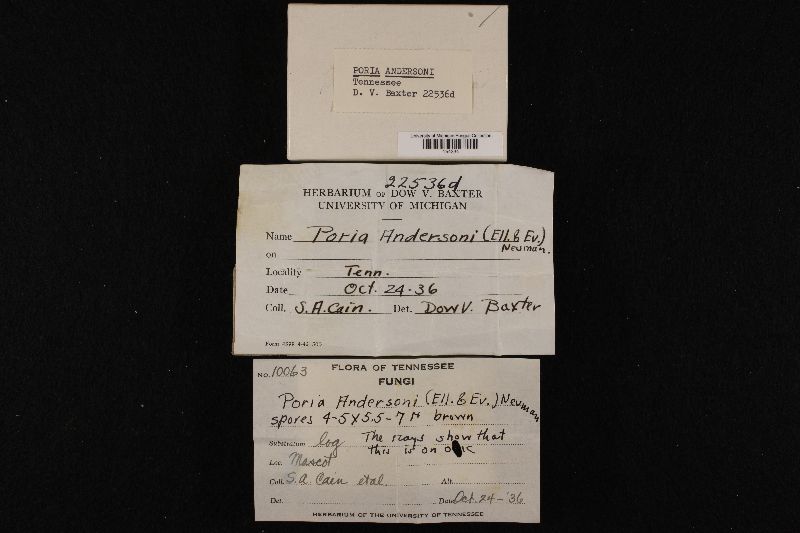 PORIA ANDERSONI
Tennessee
D. V. Baxter 22536d
University of Michigan Fungus Collection
22536d
HERBARIUM OF DOW V. BAXTER
UNIVERSITY OF MICHIGAN
Name Poria Andersoni (Ell. & Ev.)
Neuman.
on
Locality Tenn.
Date Oct. 24-36
Coll. S. A. Cain. Det. Dow V. Baxter
FLORA OF TENNESSEE
No. 10063
FUNGI
Poria Andersoni (Ell. & Ev.) Neuman
spores 4-5 X 5.5-7 µ brown
Substratum log The rays show that
this is on oak
Loc. Mascot
Coll. S. A. Cain et al Alt.
Det. Date Oct. 24-'36
HERBARIUM OF THE UNIVERSITY OF TENNESSEE